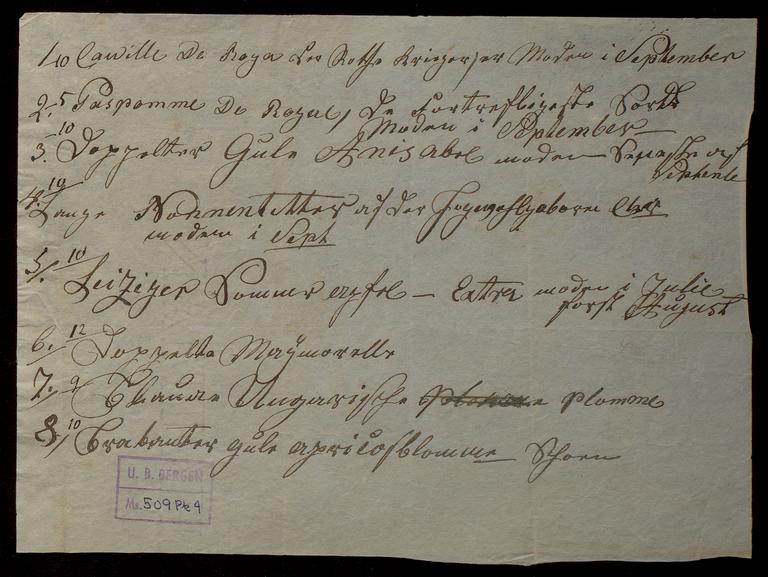 1. 10 Carville De Roya Der Rothe Krieger, er Moden i September
2. 5 Paspomme De Royal, De fortrefligeste Sorte
Moden i September
3. 10 Doppelter Gule Anis abel moden September
4. 10 Lange Nonnentitter af der
moden i Sept
5. 10 Leiziger Sommer apfel — Extra moden i Julie
forst August
6. 12 Doppelte Maymorelle
7. 9 Blaaue Ungarische plomme
8. 10 Brabanter gule apricosblomme Schoen
U. B. BERGEN
Ms. 509 Pk 4